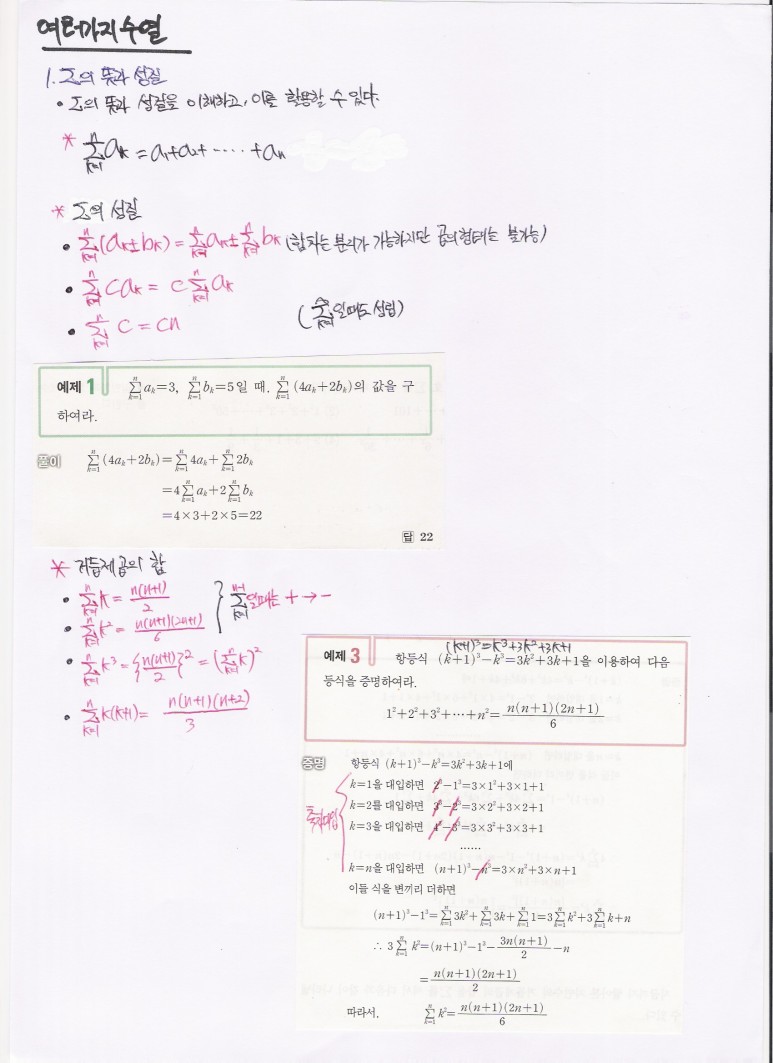 여러가지 수열
1. Σ의 뜻과 성질
• Σ의 뜻과 성질을 이해하고, 이를 활용할 수 있다.
* $\sum_{k=1}^{n} a_k = a_1 + a_2 + \cdots\cdots + a_n$
* Σ의 성질
• $\sum_{k=1}^{n} (a_k \pm b_k) = \sum_{k=1}^{n} a_k \pm \sum_{k=1}^{n} b_k$ (합차는 분리가 가능하지만 곱의형태는 불가능)
• $\sum_{k=1}^{n} c a_k = c \sum_{k=1}^{n} a_k$
• $\sum_{k=1}^{n} c = cn$
일때도 성립)
예제 1 $\sum_{k=1}^{n} a_k = 3$, $\sum_{k=1}^{n} b_k = 5$일 때, $\sum_{k=1}^{n} (4a_k + 2b_k)$의 값을 구
하여라.
풀이 $\sum_{k=1}^{n} (4a_k + 2b_k) = \sum_{k=1}^{n} 4a_k + \sum_{k=1}^{n} 2b_k$
$= 4\sum_{k=1}^{n} a_k + 2\sum_{k=1}^{n} b_k$
$= 4 \times 3 + 2 \times 5 = 22$
답 22
* 거듭제곱의 합
• $\sum_{k=1}^{n} k = \frac{n(n+1)}{2}$
• $\sum_{k=1}^{n} k^2 = \frac{n(n+1)(2n+1)}{6}$
$\sum_{k=1}^{n-1}$ 일때는 + → −
• $\sum_{k=1}^{n} k^3 = \left\{\frac{n(n+1)}{2}\right\}^2 = \left(\sum_{k=1}^{n} k\right)^2$
• $\sum_{k=1}^{n} k(k+1) = \frac{n(n+1)(n+2)}{3}$
$(k+1)^3 = k^3 + 3k^2 + 3k + 1$
예제 3 항등식 $(k+1)^3 - k^3 = 3k^2 + 3k + 1$을 이용하여 다음
등식을 증명하여라.
$1^2 + 2^2 + 3^2 + \cdots + n^2 = \frac{n(n+1)(2n+1)}{6}$
증명 항등식 $(k+1)^3 - k^3 = 3k^2 + 3k + 1$에
k=1을 대입하면 $2^3 - 1^3 = 3 \times 1^2 + 3 \times 1 + 1$
k=2를 대입하면 $3^3 - 2^3 = 3 \times 2^2 + 3 \times 2 + 1$
k=3을 대입하면 $4^3 - 3^3 = 3 \times 3^2 + 3 \times 3 + 1$
……
k=n을 대입하면 $(n+1)^3 - n^3 = 3 \times n^2 + 3 \times n + 1$
이들 식을 변끼리 더하면
$(n+1)^3 - 1^3 = \sum_{k=1}^{n} 3k^2 + \sum_{k=1}^{n} 3k + \sum_{k=1}^{n} 1 = 3\sum_{k=1}^{n} k^2 + 3\sum_{k=1}^{n} k + n$
∴ $3\sum_{k=1}^{n} k^2 = (n+1)^3 - 1^3 - \frac{3n(n+1)}{2} - n$
$= \frac{n(n+1)(2n+1)}{2}$
따라서, $\sum_{k=1}^{n} k^2 = \frac{n(n+1)(2n+1)}{6}$